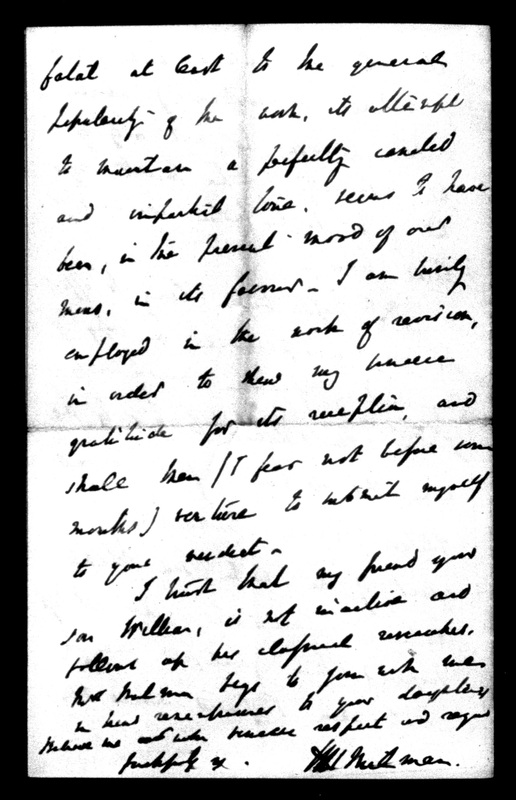 fatal at least to the general
popularity of the work, its attempt
to maintain a perfectly candid
and impartial tone, seems to have
been, in the present mood of our
mens, in its favour – I am busily
employed in the work of revision,
in order to shew my sincere
gratitude for its reception, and
shall then (I fear not before some
months) venture to submit myself
to your verdict –
I trust that my friend your
son William, is not inactive and
follows up his classical researches.
Mrs Milman begs to join with me
in kind remembrances to your daughters
Believe me with sincere respect and regard
faithfully yr.
HH Milman.